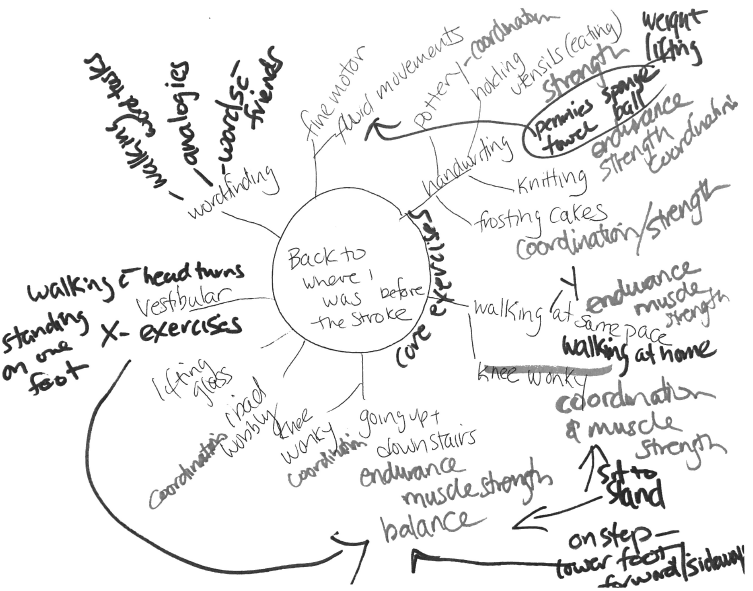 weight
lifting
walking
word tasks
analogies
zoom/5Z-
friends
fine motor
fluid movements
pottery-coordination
holding
utensils (eating)
strength
pennies sponge
towel ball
endurance
strength
coordination
handwriting
wordfinding
Knitting
frosting cakes
coordination/strength
Back to
where I
was before
the stroke
core exercises
walking c head turns
Vestibular
X- exercises
standing
on one
foot
walking at same pace
endurance
muscle
strength
walking at home
knee wonky
coordination
& muscle
strength
lifting
ipad
wobbly
coordination
knee
wonky
coordination
going up +
down stairs
endurance
muscle strength
balance
sit to
stand
on step -
lower foot
forward/sideway